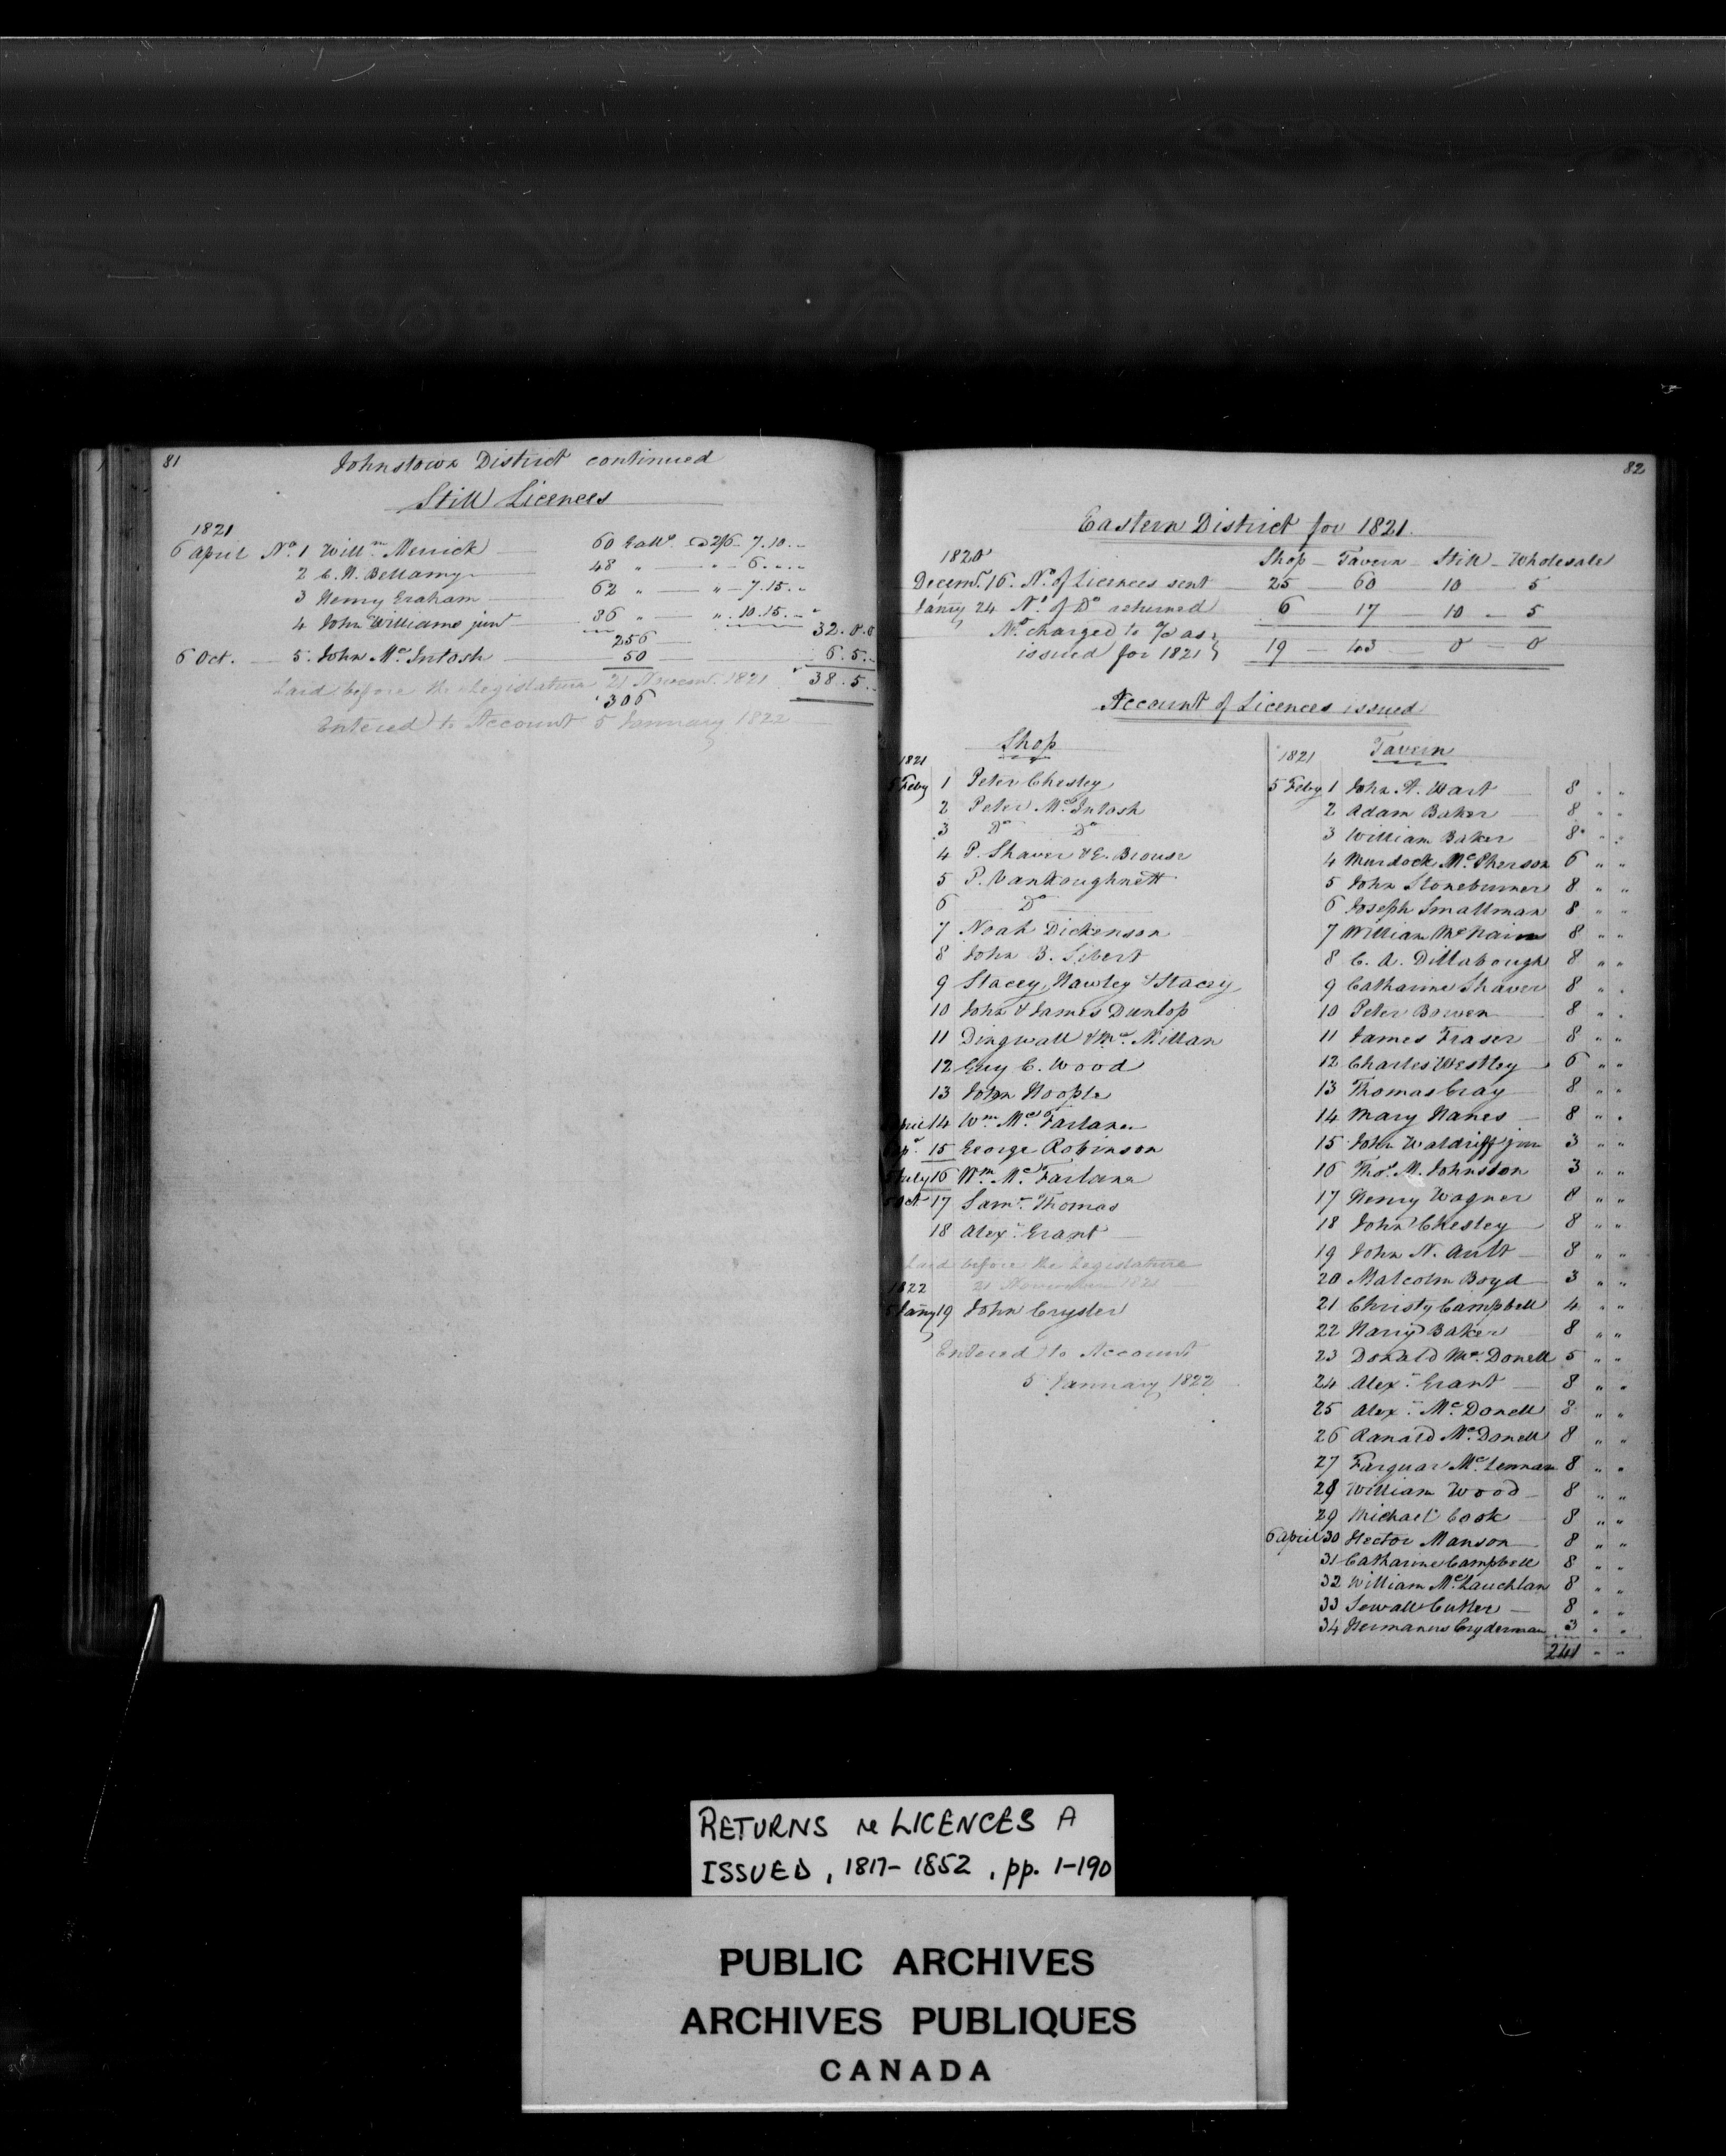 81
Johnstown District continued
Still Licences
1821
6 April No. 1 Willm. Merrick — 60 Galls. @ 2/6 7.10. "
2 C. H. Bellamy — 48 " — " — 6. " . "
3 Henry Graham — 62 " — " — 7.15. "
4 John Williams junr — 86 " — " . 10.15. "
256 32.0.0
6 Oct. 5. John Mc. Intosh — 50 6.5. "
Laid before the Legislature 21 Novemr. 1821 38.5. "
306
Entered to Account 5 January 1822
82
Eastern District for 1821.
1820
Shop — Tavern — Still — Wholesale
Decemr. 16. No. of Licences sent 25 60 10 5
Jany 24 No. of Do returned 6 17 10 5
No. charged to a/c as
issued for 1821 } 19 43 0 0
Account of Licences issued
Shop
1821
5 Feby 1 Peter Chesley
2 Peter Mc. Intosh
3 Do Do
4 P. Shaver & E. Brouse
5 P. VanKoughnett
6 Do
7 Noah Dickenson
8 John B. Sibert
9 Stacey, Hawley & Stacey
10 John & James Dunlop
11 Dingwall & Mc. Millan
12 Guy C. Wood
13 John Hoople
April 14 Wm. Mc. Farlane
15 George Robinson
5 July 16 Wm. Mc. Farlane
5 Oct 17 Saml. Thomas
18 Alexr. Grant
Laid before the Legislature
21 November 1821
1822
5 Jany 19 John Crysler
Entered to Account
5 January 1822
Tavern
1821
5 Feby 1 John A. Wart 8 " "
2 Adam Baker 8 " "
3 William Baker 8 " "
4 Murdock Mc. Pherson 6 " "
5 John Stoneburner 8 " "
6 Joseph Smallman 8 " "
7 William McNairn 8 " "
8 C. A. Dillabough 8 " "
9 Catharine Shaver 8 " "
10 Peter Bowen 8 " "
11 James Fraser 8 " "
12 Charles Westley 6 " "
13 Thomas Cray 8 " "
14 Mary Hanes 8 " "
15 John Waldriff jun 3 " "
16 Thos. M. Johnston 3 " "
17 Henry Wagner 8 " "
18 John Chesley 8 " "
19 John N. Ault 8 " "
20 Malcolm Boyd 3 " "
21 Christy Campbell 4 " "
22 Harry Baker 8 " "
23 Donald Mc. Donell 5 " "
24 Alexr. Grant 8 " "
25 Alexr. Mc. Donell 8 " "
26 Ranald Mc. Donell 8 " "
27 Farquar Mc. Lennan 8 " "
28 William Wood 8 " "
29 Michael Cook 8 " "
6 April 30 Hector Manson 8 " "
31 Catharine Campbell 8 " "
32 William Mc. Lauchlan 8 " "
33 Sewall Cutler 8 " "
34 Hermanus Cryderman 3 " "
241 " "
RETURNS re LICENCES A
ISSUED, 1817-1852, pp. 1-190
PUBLIC ARCHIVES
ARCHIVES PUBLIQUES
CANADA